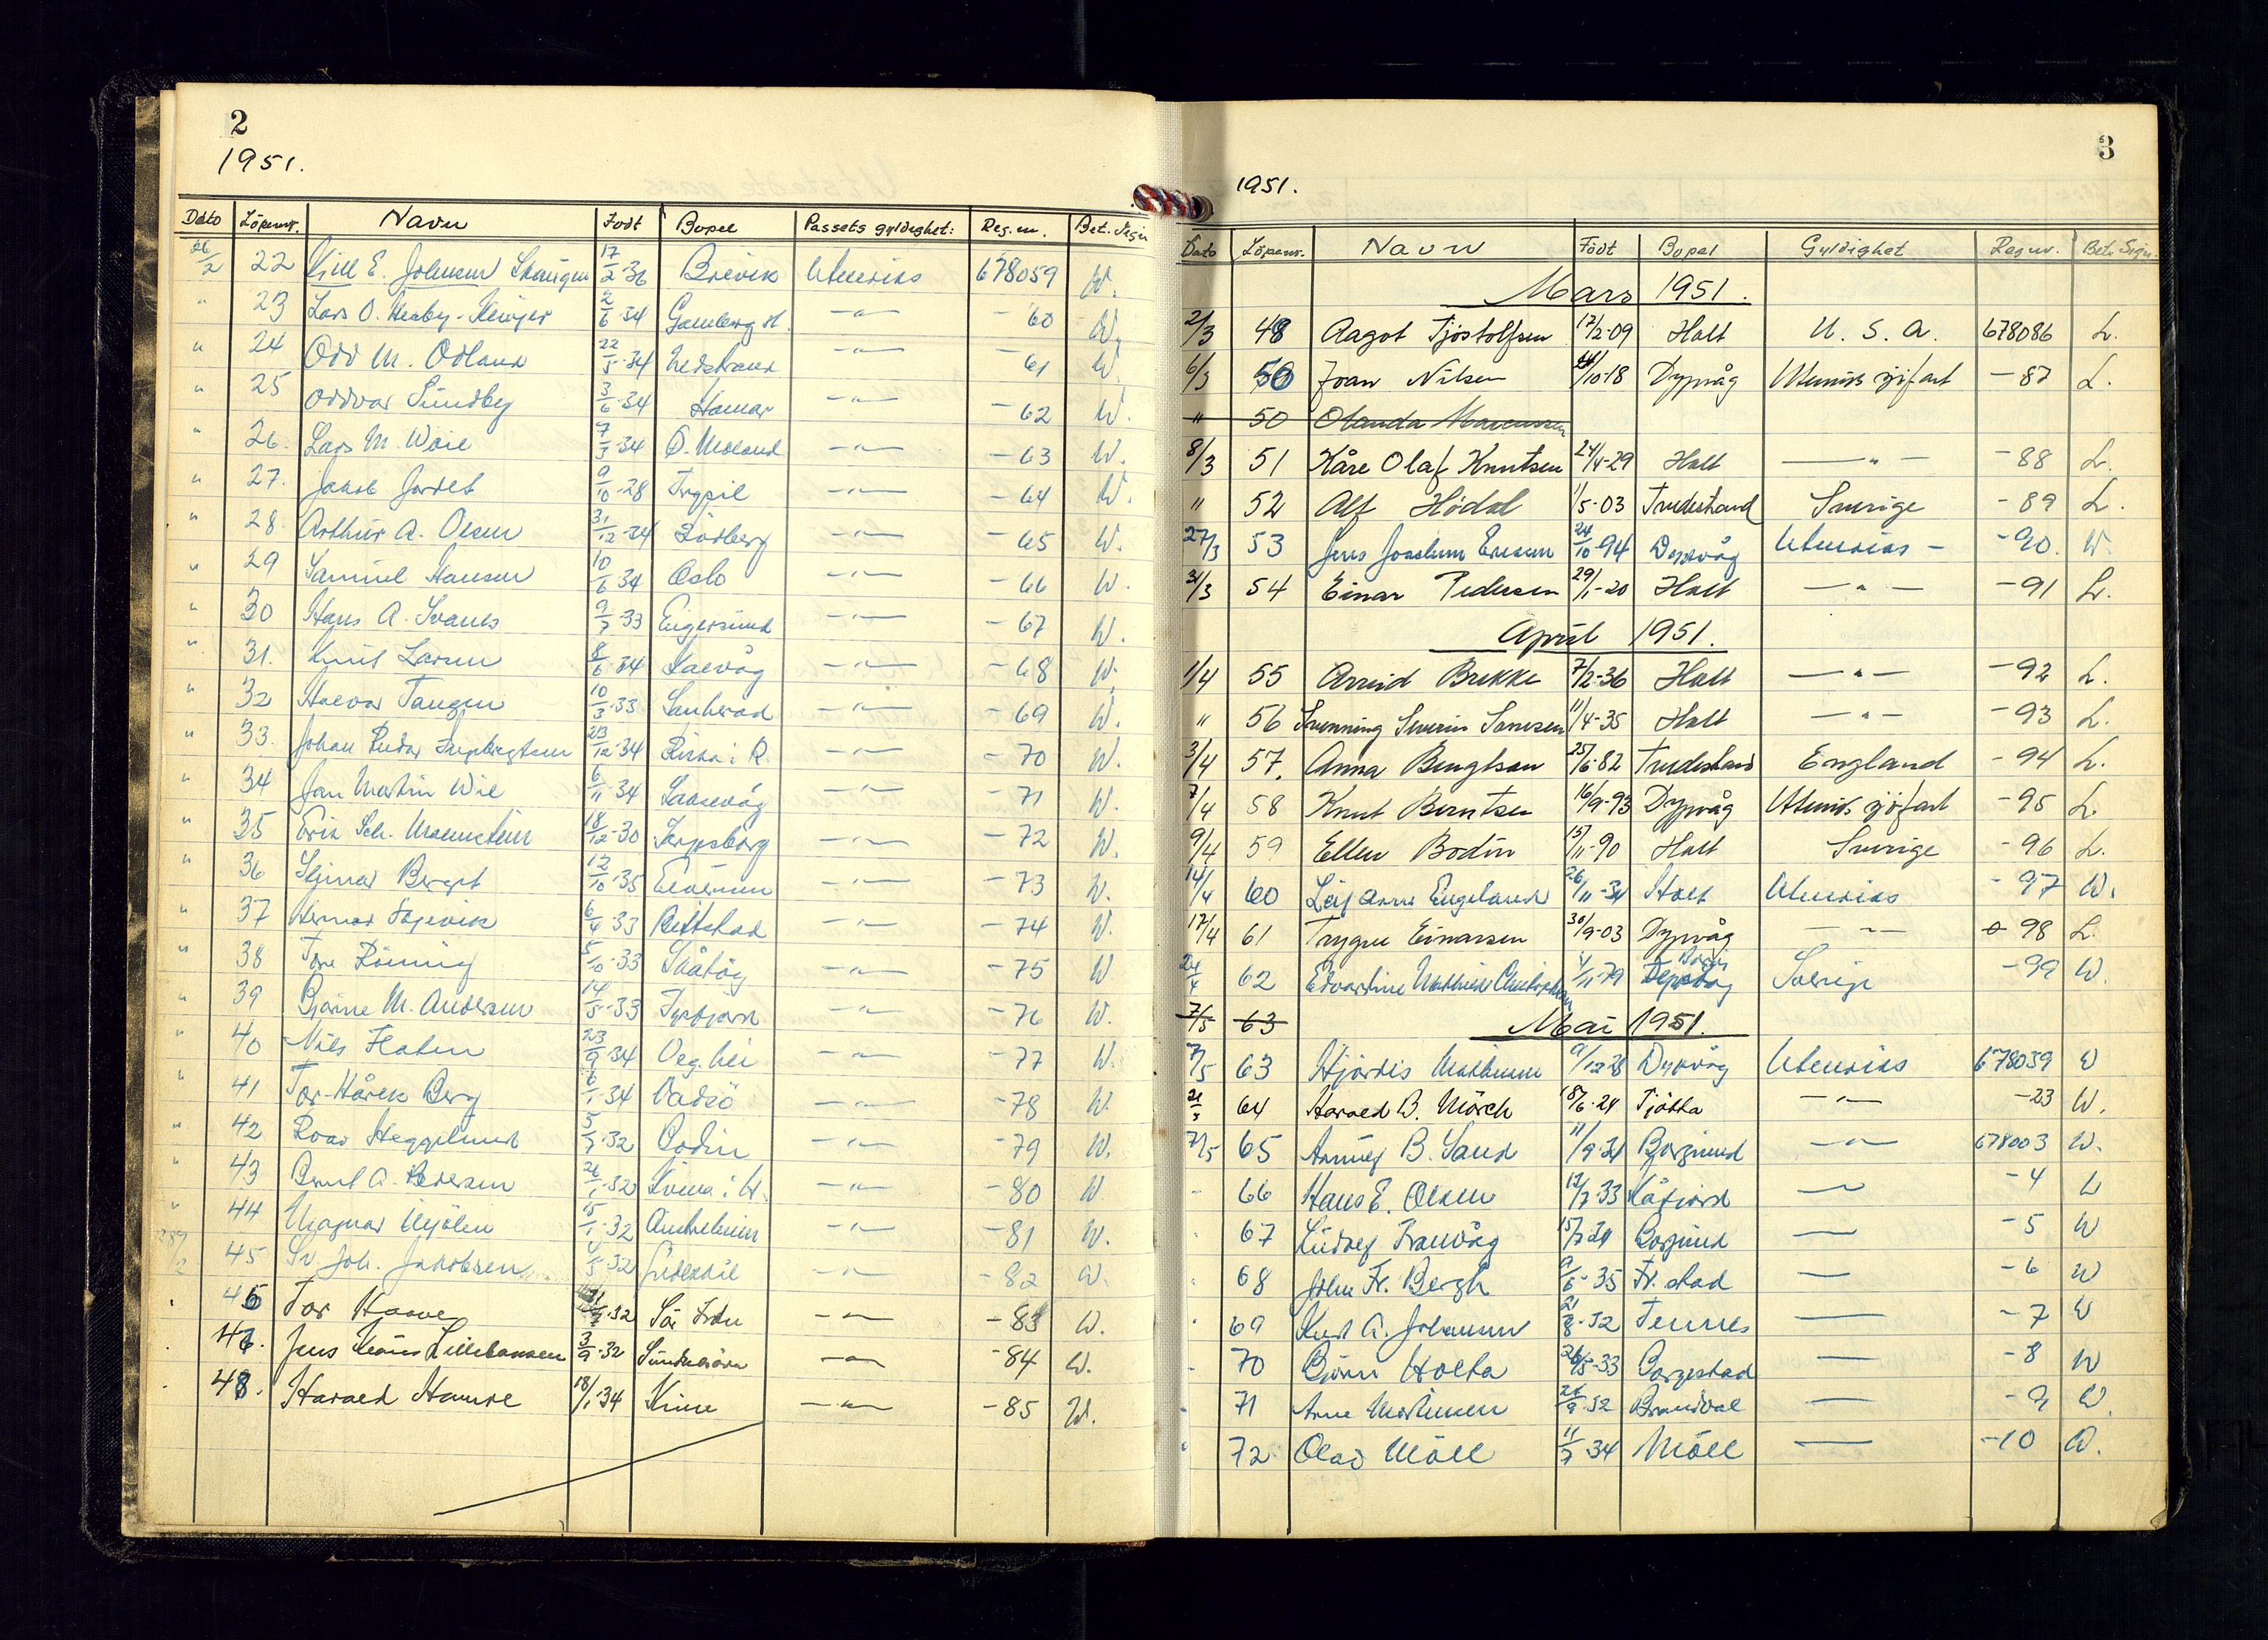 2
1951.
Dato Löpenr. Navn Født Bopel Passets gyldighet: Reg.nr. Bet. Sign
26/2 22 Kjell E. Johnsen Skaugen 17/2-36 Brevik Utenriks 678059 W.
" 23 Lars O. 2/6-34 Gamberg H. —"— -60 W.
" 24 Odd M. Odland 22/5-34 Nedstrand —"— -61 W
" 25 Oddvar Sundby 3/6-34 Hamar —"— -62 W.
" 26. Lars M. Woie 7/3-34 Ö. Moland —"— -63 W.
" 27. Jakob Jordet 9/10-28 Trysil —"— -64 W.
" 28. Arthur A. Olsen 31/12-34 —"— -65 W.
" 29 Samuel Hansen 10/6-34 Oslo —"— -66 W.
" 30 Hans A. Svanes 9/7-33 Eigersund —"— -67 W.
" 31. Knut Larsen 8/6-34 Kalvåg —"— -68 W.
" 32 Halvor Tangen 10/3-33 Sauherad —"— -69 W.
" 33. Johan Peder Ingebrigtsen 23/12-34 Rissa i R. —"— -70 W.
" 34 Jan Martin Wie 6/11-34 Laksevåg —"— -71 W.
" 35 Erik Sch. 18/12-30 Sarpsborg —"— -72 W.
" 36 Berget 12/10-35 Elverum —"— -73 W.
" 37 6/4-33 Buksnes —"— -74 W.
" 38 Tore Rönning 5/10-33 Skåtöy —"— -75 W
" 39 Bjarne M. Andersen 14/5-33 —"— -76 W.
" 40 Nils Flaten 23/9-34 —"— -77 W.
" 41 Tor-Hårek Berg 6/1-34 Vadsö —"— -78 W.
" 42 Roar Heggelund 5/7-32 Bodin —"— -79 W.
" 43 Bernt A. Pedersen 26/1-32 —"— -80 W
" 44 Magnar Mjölen 15/1-32 —"— -81 W.
45 Sv. Joh. Jakobsen 4/5-32 —"— -82 W.
46 Tor Haave -32 Sör Fron —"— -83 W.
47. Jens Lillehansen 3/9-32 —"— -84 W.
48. Harald Hamre 18/1-34 Kinn —"— -85 W.
3
1951.
Dato Löpenr. Navn Født Bopel Gyldighet Reg.nr. Bet. Sign.
Mars 1951.
2/3 48 Aagot Tjöstolfsen 17/2-09 Holt U. S. A. 678086 L.
6/3 50 Joan Nilsen /10-18 Dypvåg Utenriks sjöfart -87 L.
" 50 Olanda Marcussen
8/3 51 Kåre Olaf Knutsen 24/4-29 Holt —"— -88 L.
" 52 Alf Hödal 1/5-03 Tvedestrand Sverige -89 L.
27/3 53 Jens Joachim Ericsen 24/10-94 Dypvåg Utenriks — -90. W.
31/3 54 Einar Pedersen 29/1-20 Holt —"— -91 L.
April 1951.
1/4 55 Arvid Brekke 7/2-36 Holt —"— -92 L.
" 56 Svenning Severin Sörensen 11/4-35 Holt —"— -93 L.
3/4 57. Anna Bengtson 25/6-82 Tvedestrand England -94 L.
7/4 58 Knut Berntsen 16/9-93 Dypvåg Utenriks sjöfart -95 L.
9/4 59 Ellen Bodin 15/11-90 Holt Sverige -96 L.
14/4 60 Leif Arne Engeland 26/11-34 Holt Utenriks -97 W.
17/4 61 Trygve Einarsen 30/9-03 Dypvåg —"— -98 L.
24/4 62 Edvardine Mathilde Christophersen 4/11-79 Sverige -99 W.
7/5 63 Mai 1951.
7/5 63 Hjördis Mathisen 9/12-28 Dypvåg Utenriks 678039 W
21/5 64 Harald B. Mörch 18/6-24 Tjötta —"— -23 W.
7/5 65 Arnulf B. Sand 11/9-31 Borgund —"— 678003 W.
66 Hans E. Olsen 12/7-33 Kåfjord — -4 W
67 Ludvig 15/7-34 Borgund — -5 W
68 John Fr. Bergh 9/6-35 Fr.stad — -6 W
69 Knut A. Johansen 21/8-32 Tennes — -7 W
70 Björn Holta 26/5-33 Borgestad — -8 W
71 Arne Mortensen 25/9-32 Brandval — -9 W.
72 Olav Möll 11/7-34 Möll — -10 W.